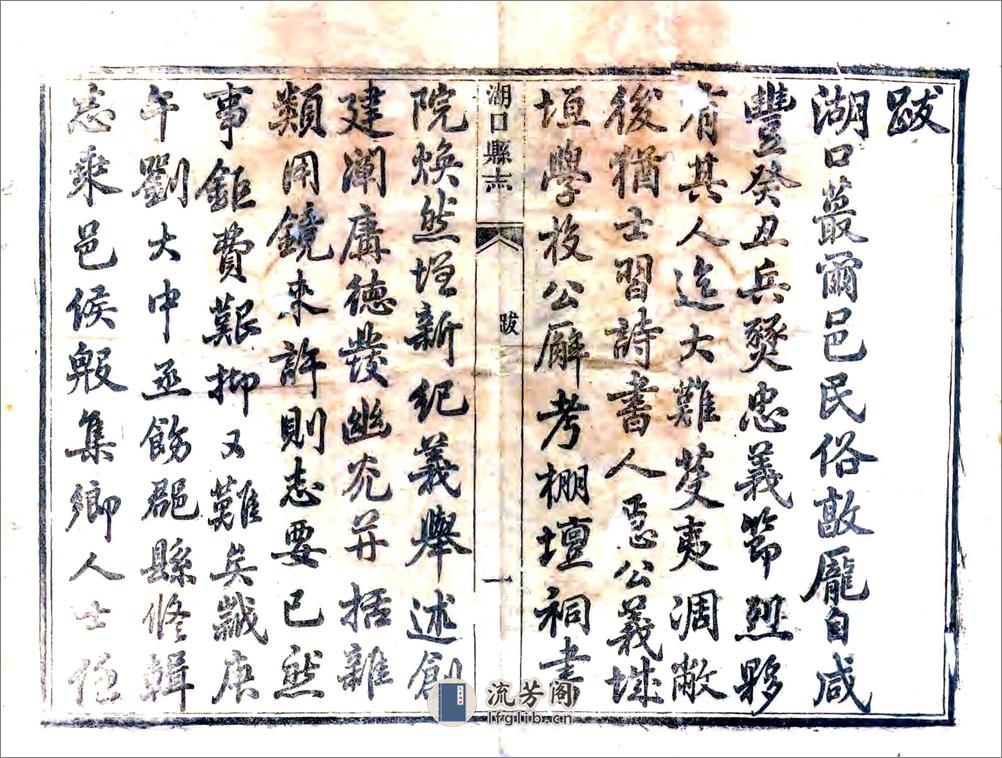 跋
湖口蕞爾邑民俗敦龐自咸
豐癸丑兵燹忠義節烈夥
有其人迄大難芟夷凋敝
後猶士習詩書人慝公義城
垣學校公廨考棚壇祠書
湖口縣志
跋
一
院煥然増新紀義舉述創
建闡庸德發幽光并括雜
類用鏡來許則志要已然
事鉅費艱抑又難矣歲庚
午劉大中丞飭郡縣修輯
志乘邑侯殷集鄉人士僅
流芳阁
lfglib.cn